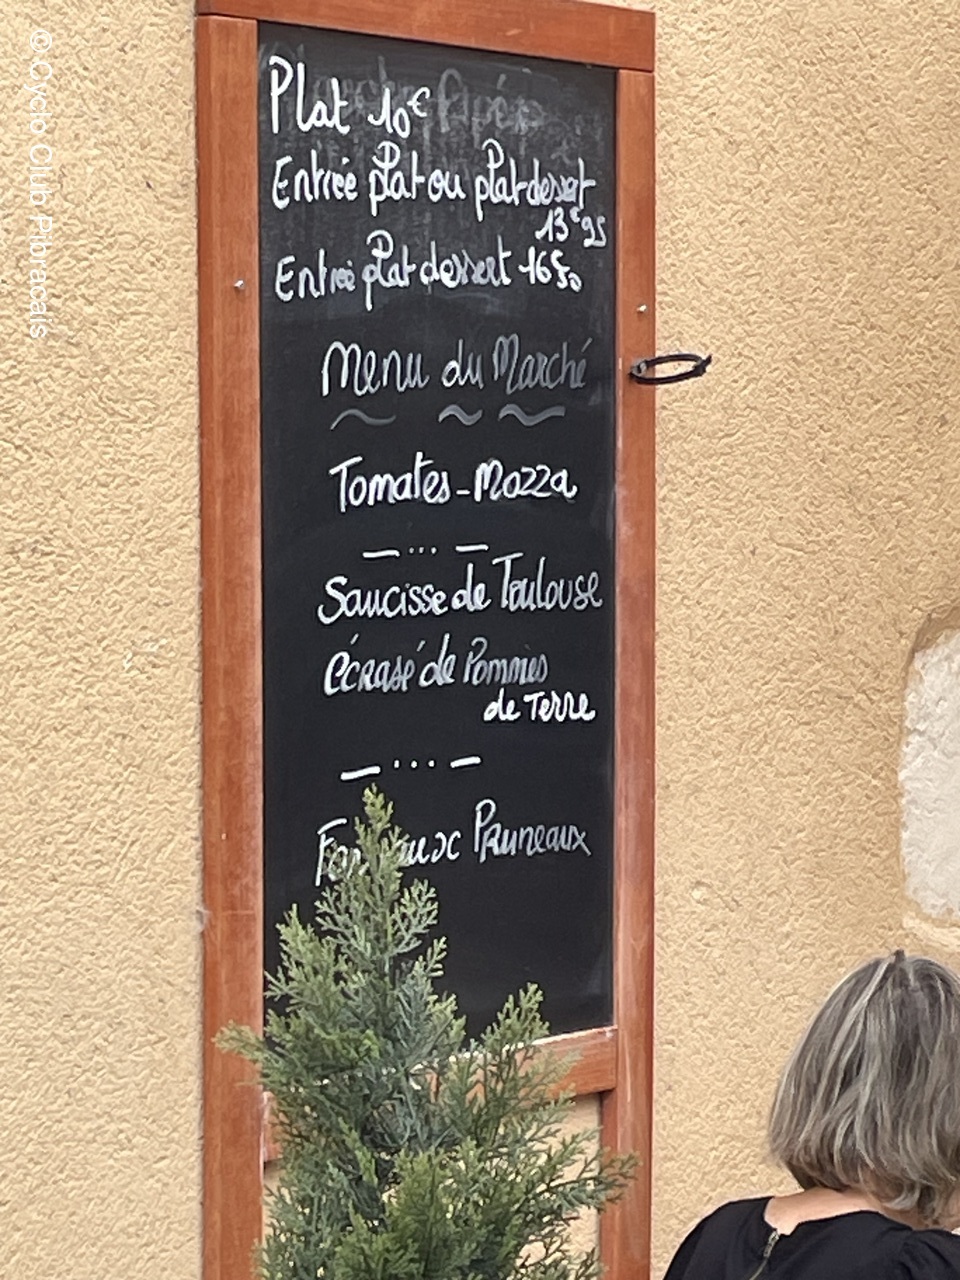 Plat 10€
Entrée plat ou plat dessert
13€95
Entrée plat dessert 16 50
Menu du Marché
Tomates - Mozza
Saucisse de Toulouse
écrasé de Pommes
de Terre
Pruneaux
© Cyclo Club Pibracais